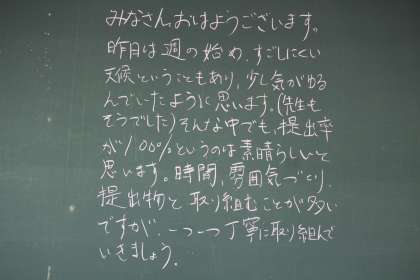 みなさん。おはようございます。
昨日は週の始め、すごしにくい
天候ということもあり、少し気がゆる
んでいたように思います。(先生も
そうでした)そんな中でも、提出率
が100%というのは素晴らしいと
思います。時間、雰囲気づくり、
提出物と取り組むことが多い
ですが、一つ一つ丁寧に取り組んで
いきましょう。